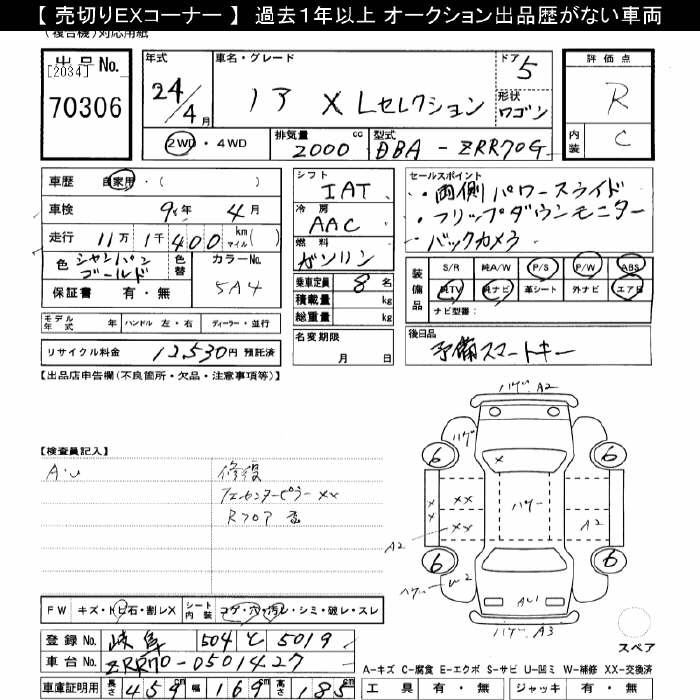 【 売切りEXコーナー 】 過去1年以上 オークション出品歴がない車両
(複合機)対応用紙
出品 No.
[2034]
70306
年式
24/4月
車名・グレード
ノア X Lセレクション
ドア 5
形状 ワゴン
評価点
R
内装 C
2WD・4WD
排気量 2000 cc
型式 DBA-ZRR70G
車歴 自家用・( )
車検 9年 4月
走行 11万 1千 400 km マイル( )
色 シャンパンゴールド
色替
カラーNo. 5A4
保証書 有・無
シフト IAT
冷房 AAC
燃料 ガソリン
乗車定員 8 名
積載量 kg
総重量 kg
セールスポイント
・両側パワースライド
・フリップダウンモニター
・バックカメラ
装備品 S/R 純A/W P/S P/W ABS
純TV 純ナビ 革シート 外ナビ エアB
ナビ型番:
モデル年式 年 ハンドル 左・右 ディーラー・並行
リサイクル料金 12,530円 預託済
名変期限 月 日
後日品
予備スマートキー
【出品店申告欄(不良箇所・欠品・注意事項等)】
ハゲ A2
ハゲ
【検査員記入】
A・U
修復
フェセンターピラーXX
Rフロア 歪
6 6
X
XX
ハゲー
X
X
XX
A2
A2
6 6
W2
AU
ハゲ A3
スペア
FW キズ・トビ石・割レX シート内装 コゲ・穴・汚レ・シミ・破レ・スレ
登録No. 岐阜 504 て 5019
車台No. ZRR70-0501427
車庫証明用 長さ 459 cm 幅 169 cm 高さ 185 cm
A-キズ C-腐食 E-エクボ S-サビ U-凹ミ W-補修 XX-交換済
工具 有・無 ジャッキ 有・無